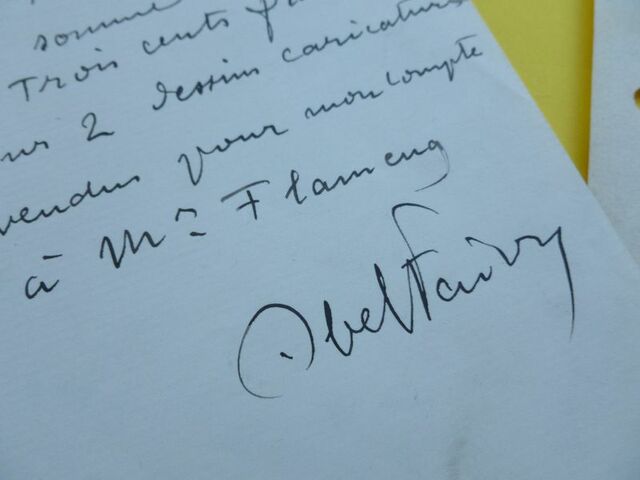 somme
Trois cents
2 dessins caricatures
vendus pour mon compte
à Mr Flameng
Abel Faivre